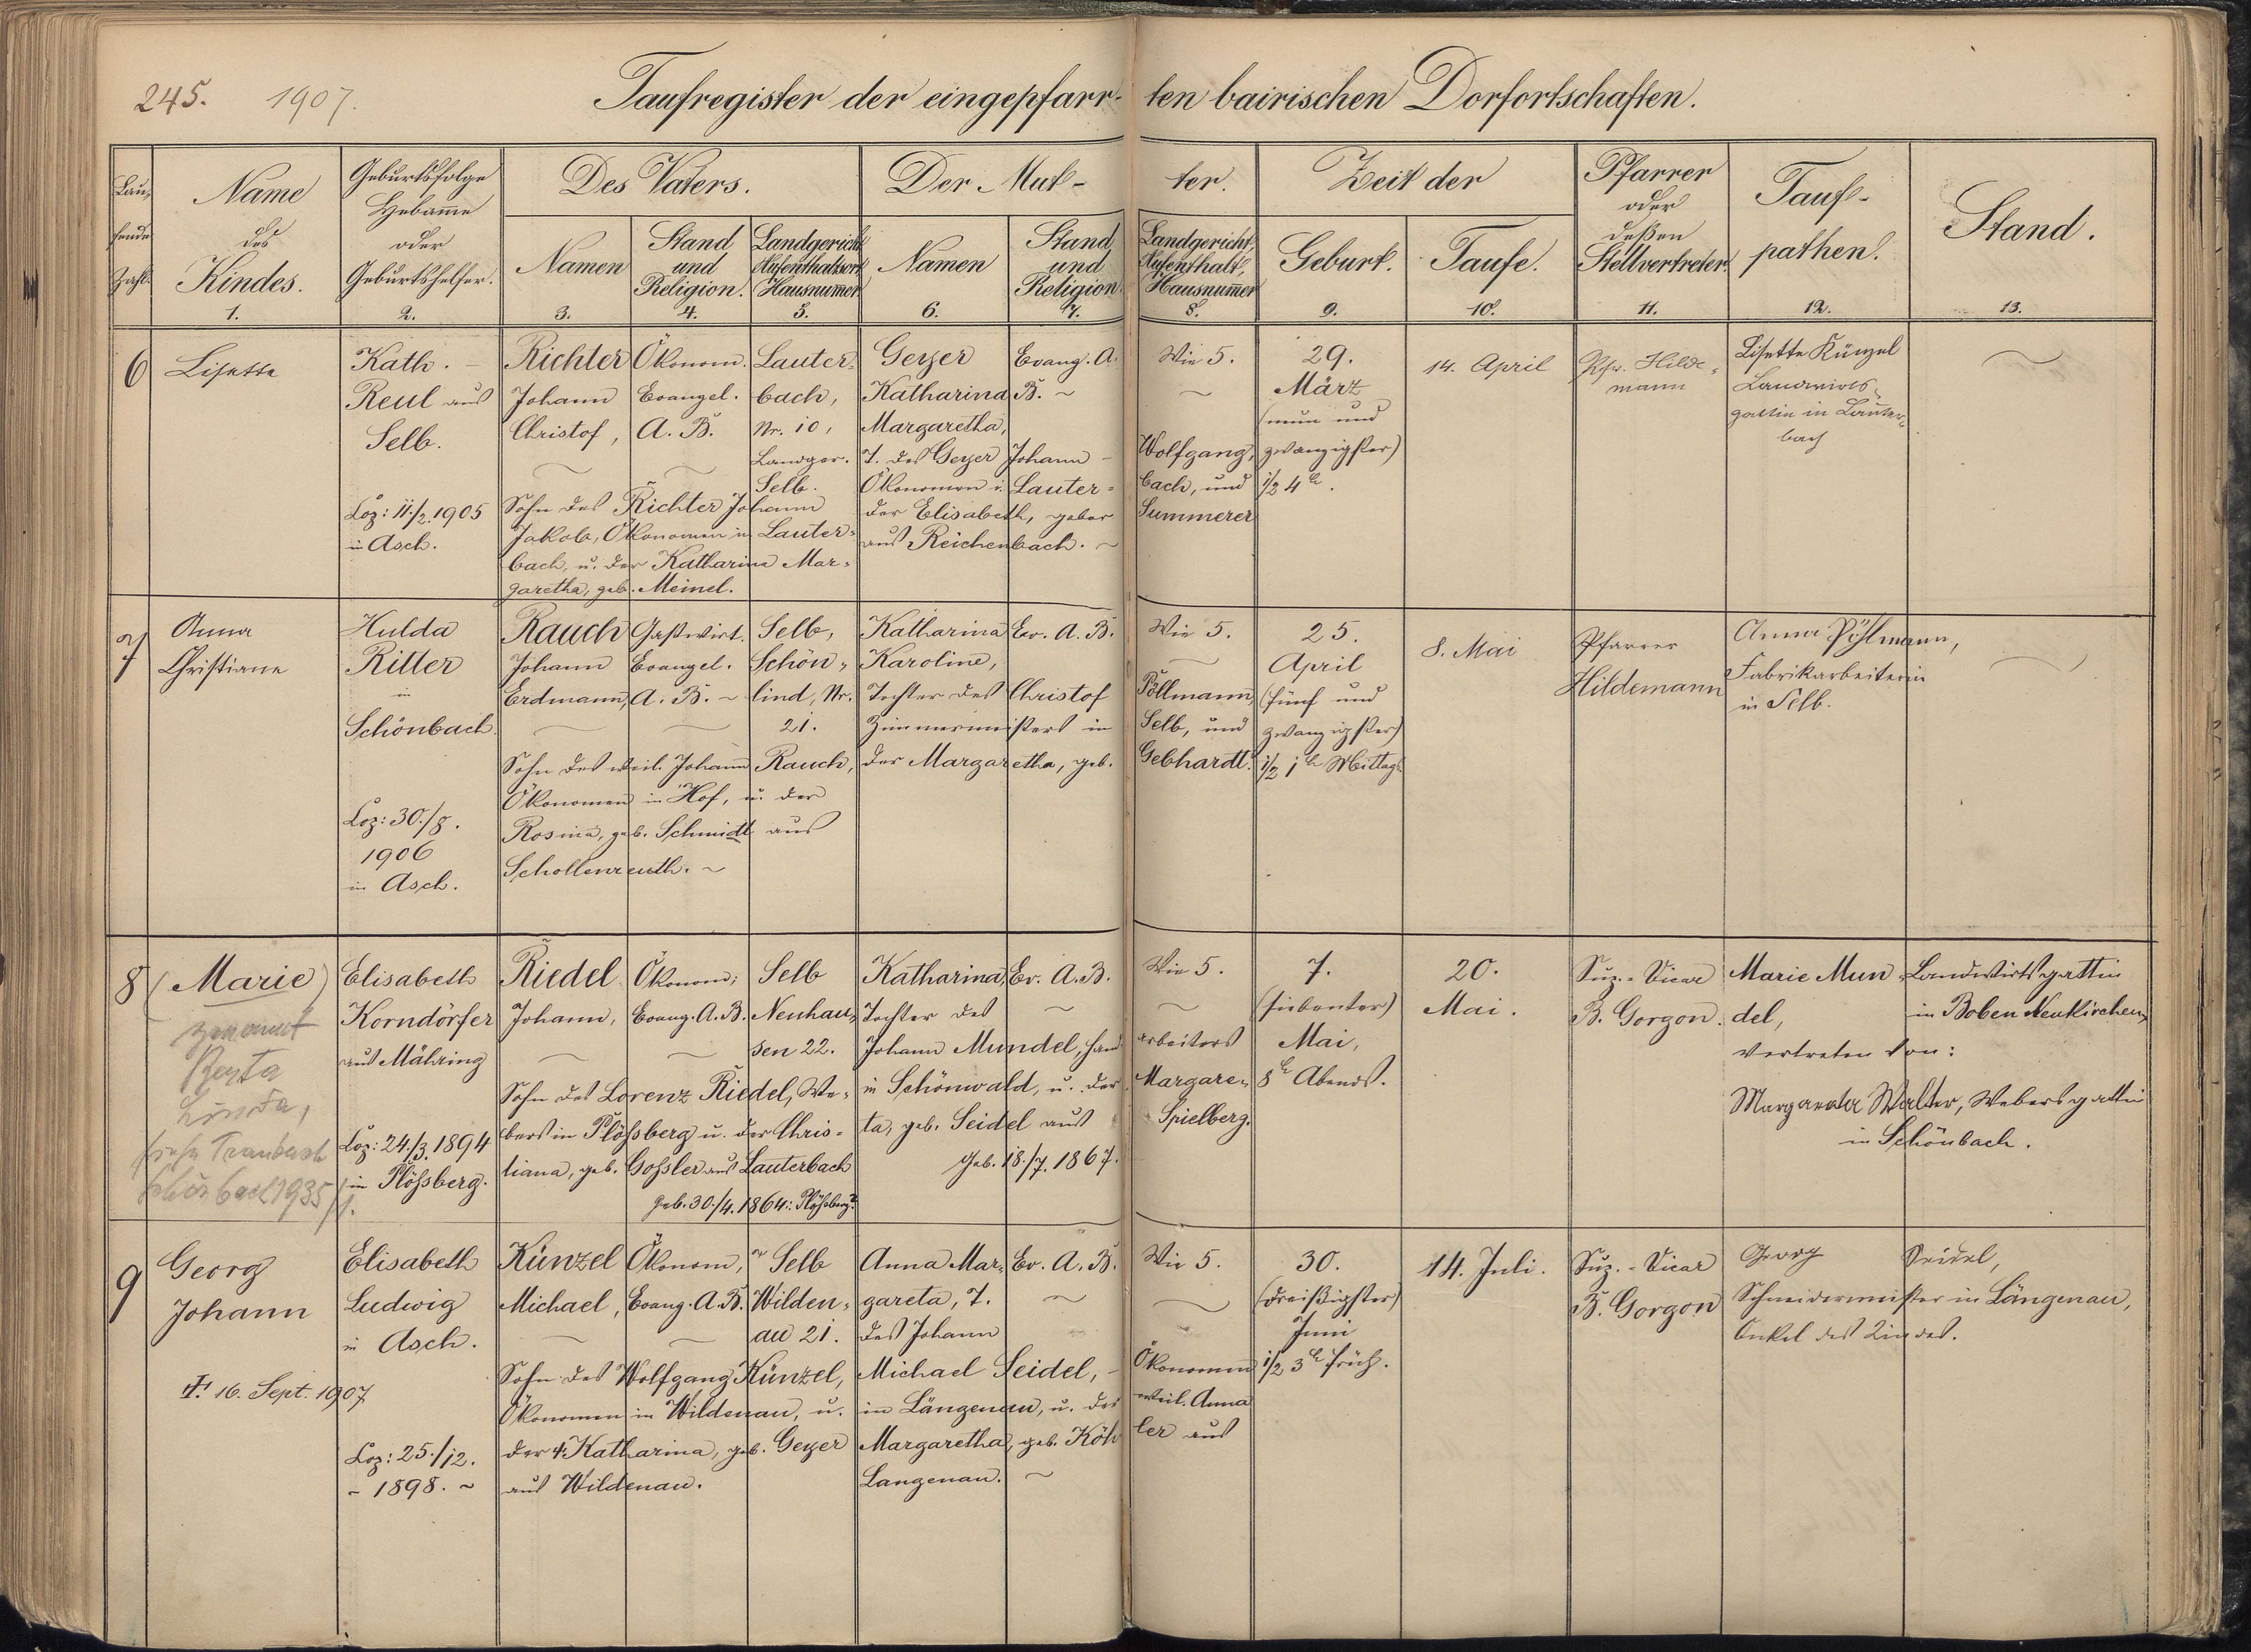 245. 1907. Taufregister der eingepfarr- ten bairischen Dorfortschaften.
Lau-
fende
Zahl.
Name
des
Kindes.
1.
Geburtsfolge
Hebamme
oder
Geburtshelfer.
2.
Des Vaters.
Namen
3.
Stand
und
Religion.
4.
Landgericht
Aufenthaltsort
Hausnummer
5.
Der Mut- ter.
Namen
6.
Stand
und
Religion.
7.
Landgericht,
Aufenthalt,
Hausnummer
8.
Zeit der
Geburt.
9.
Taufe.
10.
Pfarrer
oder
deßen
Stellvertreter.
11.
Tauf-
pathen.
12.
Stand.
13.
6
Lisette
Kath. -
Reul aus
Selb.
Coz: 11./2. 1905
in Asch.
Richter
Johann
Christof,
Ökonom.
Evangel.
A. B.
Lauter-
bach,
Nr. 10,
Landger.
Selb.
Sohn des Richter Johann
Jakob, Ökonomen in Lauter-
bach, u. der Katharina Mar-
garetha, geb. Meinel.
Geyer
Katharina
Margaretha,
Evang. A.
B. ~
T. des Geyer Johann - Wolfgang,
Ökonomen i. Lauter- bach, und
der Elisabeth, gebor Summerer
aus Reichenbach. ~
Wie 5.
29.
März
(neun und
zwanzigster)
1/2 4 h.
14. April
Pfr. Hilde-
mann
Lisette Künzel
Landwirts-
gattin in Lauter-
bach
7
Anna
Christiana
Hulda
Ritter
in
Schönbach.
Coz: 30./8.
1906
in Asch.
Rauch
Johann
Erdmann,
Gastwirt.
Evangel.
A. B. ~
Selb,
Schön-
lind, Nr.
21.
Sohn des weil. Johann Rauch,
Ökonomen in Hof, u. der
Rosina, geb. Schmidt aus
Schollenreuth. ~
Katharina
Karoline,
Ev. A. B.
Tochter des Christof Pöllmann,
Zimmermeisters in Selb, und
der Margaretha, geb. Gebhardt.
Wie 5.
25.
April
(fünf und
zwanzigster)
1/2 1 h Mittag
8. Mai
Pfarrer
Hildemann
Anna Pöhlmann,
Fabrikarbeiterin
in Selb.
8
(Marie)
genannt
Linda,
Schönbach 1935
Elisabeth
Korndörfer
aus Mähring
Coz: 24/3. 1894
in Plößberg.
Riedel
Johann,
Ökonom;
Evang. A. B.
Selb
Neuhau-
sen 22.
Sohn des Lorenz Riedel, We-
bers in Plößberg u. der Chris-
tiana, geb. Goßler aus Lauterbach
geb. 30./4. 1864: Plößberg.
Katharina,
Ev. A. B.
Tochter des
Johann Mundel, Hand- arbeiters
in Schönwald, u. der Margare-
ta, geb. Seidel aus Spielberg.
Geb. 18./7. 1867.
Wie 5.
7.
(siebenter)
Mai,
8 h Abends.
20.
Mai.
Suz.-Vicar
B. Gorgon.
Marie Mun-
del, Landwirtsgattin
in Boben Neukirchen,
vertreten von:
Margareta Walter, Webersgattin
in Schönbach.
9
Georg
Johann
† 16. Sept. 1907
Elisabeth
Ludwig
in Asch.
Coz: 25./12.
- 1898. ~
Künzel
Michael,
Ökonom,
Evang. A. B.
Selb
Wilden-
au 21.
Sohn des Wolfgang Künzel,
Ökonomen in Wildenau, u.
der †. Katharina, geb. Geyer
aus Wildenau.
Anna Mar-
gareta, T.
des Johann
Ev. A. B.
Michael Seidel, - Ökonomen
in Längenau, u. der weil. Anna
Margaretha, geb. Köh- ler aus
Langenau. ~
Wie 5.
30.
(dreißigster)
Juni
1/2 3 h früh.
14. Juli.
Suz.-Vicar
B. Gorgon
Georg Seidel,
Schneidermeister in Längenau,
Onkel des Kindes.